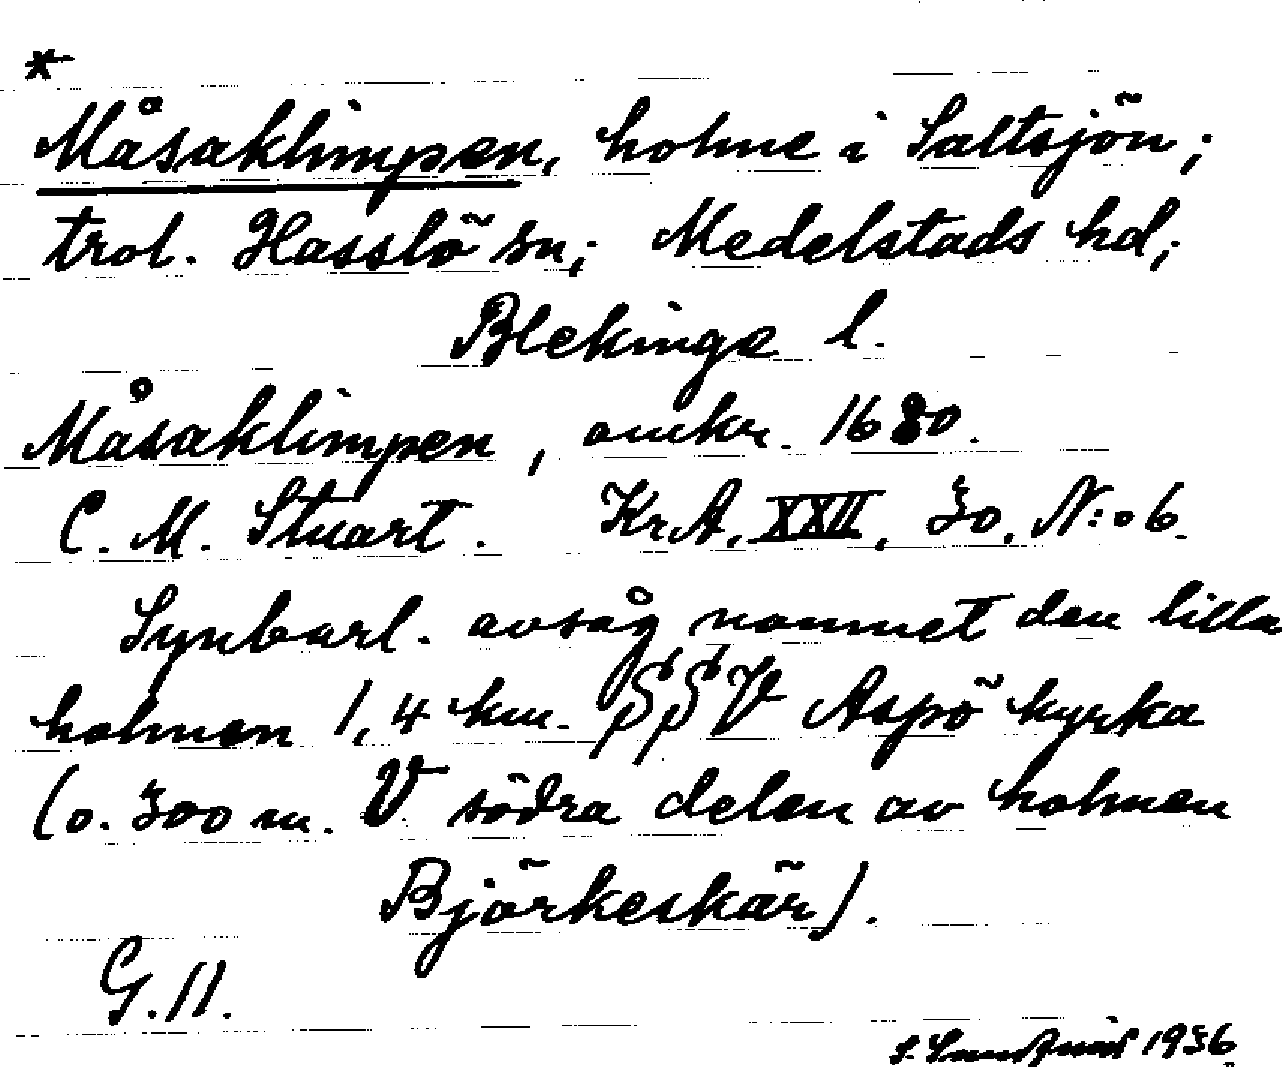 *
Måsaklimpen, holme i Saltsjön;
trol. Hasslö sn; Medelstads hd;
Blekinge l.
Måsaklimpen, omkr. 1680.
C. M. Stuart. KrA, XXII, 30, N:o 6.
Synbarl. avsåg namnet den lilla
holmen 1,4 km. SSV Aspö kyrka
(o. 300 m. V södra delen av holmen
Björkeskär).
G. 11.
1936